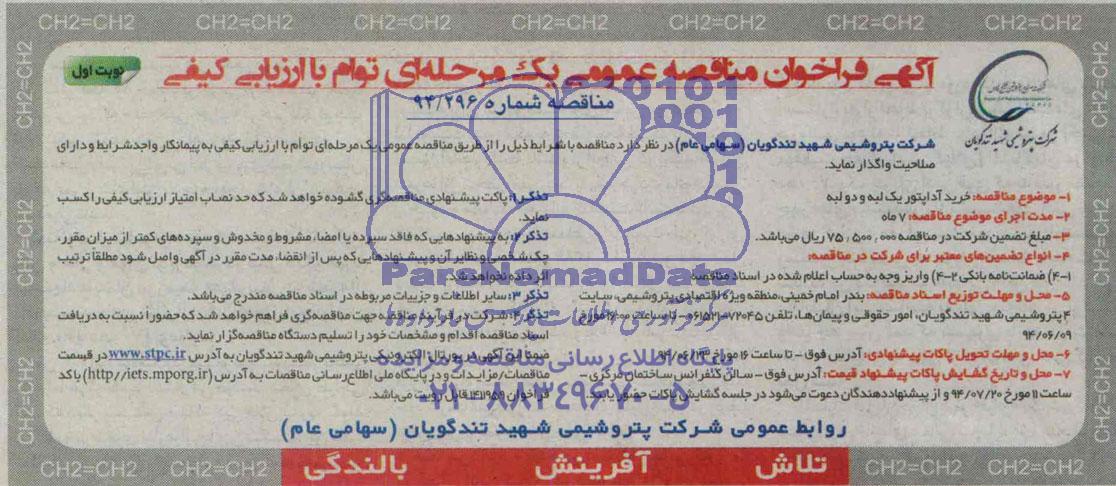 CH2=CH2 CH2=CH2 CH2=CH2 CH2=CH2 CH2=CH2 CH2=CH2 CH2=CH2
آگهی فراخوان مناقصه عمومی یک مرحله‌ای توام با ارزیابی کیفی
نوبت اول
مناقصه شماره ۹۴/۲۹۶
شرکت پتروشیمی شهید تندگویان
شرکت پتروشیمی شهید تندگویان (سهامی عام) در نظر دارد مناقصه با شرایط ذیل را از طریق مناقصه عمومی یک مرحله‌ای توأم با ارزیابی کیفی به پیمانکار واجد شرایط و دارای
صلاحیت واگذار نماید.
۱- موضوع مناقصه: خرید آداپتور یک لبه و دو لبه
۲- مدت اجرای موضوع مناقصه: ۷ ماه
۳- مبلغ تضمین شرکت در مناقصه ۷۵,۵۰۰,۰۰۰ ریال می‌باشد.
۴- انواع تضمین‌های معتبر برای شرکت در مناقصه:
۴-۱) ضمانت‌نامه بانکی ۴-۲) واریز وجه به حساب اعلام شده در اسناد مناقصه
۵- محل و مهلت توزیع اسناد مناقصه: بندر امام خمینی، منطقه ویژه اقتصادی پتروشیمی، سایت
۴ پتروشیمی شهید تندگویان، امور حقوقی و پیمان‌ها، تلفن ۷۲۰۴۵-۰۶۱۵۲ تا ساعت مورخ
۹۴/۰۶/۰۹
۶- محل و مهلت تحویل پاکات پیشنهادی: آدرس فوق - تا ساعت ۱۶ مورخ ۹۴/۰۶/۲۳
۷- محل و تاریخ گشایش پاکات پیشنهاد قیمت: آدرس فوق - سالن کنفرانس ساختمان مرکزی -
ساعت ۱۱ مورخ ۹۴/۰۷/۲۰ و از پیشنهاددهندگان دعوت می‌شود در جلسه گشایش پاکات حضور یابند.
تذکر ۱: پاکت پیشنهادی مناقصه‌گری گشوده خواهد شد که حد نصاب امتیاز ارزیابی کیفی را کسب
نماید.
تذکر ۲: به پیشنهادهایی که فاقد سپرده یا امضا، مشروط و مخدوش و سپرده‌های کمتر از میزان مقرر،
چک شخصی و نظایر آن و پیشنهادهایی که پس از انقضاء مدت مقرر در آگهی واصل شود مطلقاً ترتیب
اثر داده نخواهد شد.
تذکر ۳: سایر اطلاعات و جزییات مربوطه در اسناد مناقصه مندرج می‌باشد.
تذکر ۴: شرکت در فرآیند مناقصه جهت مناقصه‌گری فراهم خواهد شد که حضوراً نسبت به دریافت
اسناد مناقصه اقدام و مشخصات خود را تسلیم دستگاه مناقصه‌گزار نماید.
ضمناً این آگهی در پورتال الکترونیکی پتروشیمی شهید تندگویان به آدرس www.stpc.ir در قسمت
مناقصات/مزایدات و در پایگاه ملی اطلاع‌رسانی مناقصات به آدرس (http//iets.mporg.ir) با کد
فراخوان ۱۴۱۱۹۵۹ قابل رویت می‌باشد.
ParsNamadData
پایگاه اطلاع رسانی مناقصه و مزایده
۰۲۱-۸۸۳۴۹۶۷۰-۵
روابط عمومی شرکت پتروشیمی شهید تندگویان (سهامی عام)
تلاش آفرینش بالندگی
CH2=CH2 CH2=CH2 CH2=CH2 CH2=CH2